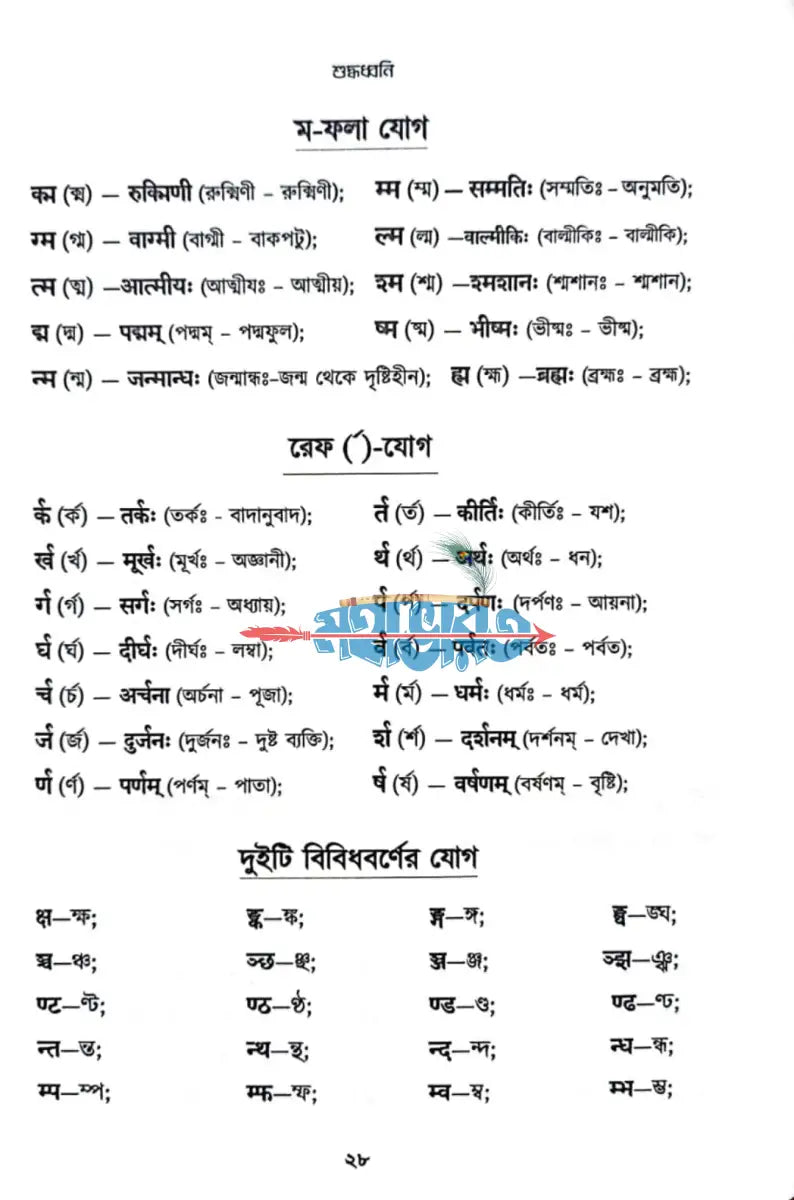 শুদ্ধধ্বনি
ম-ফলা যোগ
क्म (ক্ম) — रुक्मिणी (রুক্মিণী – রুক্মিণী); म्म (ম্ম) — सम्मतिः (সম্মতিঃ – অনুমতি);
ग्म (গ্ম) — वाग्मी (বাগ্মী – বাকপটু); ल्म (ল্ম) —वाल्मीकिः (বাল্মীকিঃ – বাল্মীকি);
त्म (ত্ম) —आत्मीयः (আত্মীযঃ – আত্মীয়); श्म (শ্ম) —श्मशानः (শ্মশানঃ – শ্মশান);
द्म (দ্ম) — पद्मम् (পদ্মম্ – পদ্মফুল); ष्म (ষ্ম) — भीष्मः (ভীষ্মঃ – ভীষ্ম);
न्म (ন্ম) — जन्मान्धः (জন্মান্ধঃ–জন্ম থেকে দৃষ্টিহীন); ह्म (হ্ম) —ब्रह्मः (ব্রহ্মঃ – ব্রহ্ম);
রেফ (র্)-যোগ
र्क (র্ক) — तर्कः (তর্কঃ – বাদানুবাদ); र्त (র্ত) — कीर्तिः (কীর্তিঃ – যশ);
र्ख (র্খ) — मूर्खः (মূর্খঃ – অজ্ঞানী); र्थ (র্থ) — अर्थः (অর্থঃ – ধন);
र्ग (র্গ) — सर्गः (সর্গঃ – অধ্যায়); र्प (র্প) — दर्पणः (দর্পণঃ – আয়না);
र्घ (র্ঘ) — दीर्घः (দীর্ঘঃ – লম্বা); र्व (র্ব) — पर्वतः (পর্বতঃ – পর্বত);
মহাভারত
र्च (র্চ) — अर्चना (অর্চনা – পূজা); र्म (র্ম) — धर्मः (ধর্মঃ – ধর্ম);
र्ज (র্জ) — दुर्जनः (দুর্জনঃ – দুষ্ট ব্যক্তি); र्श (র্শ) — दर्शनम् (দর্শনম্ – দেখা);
र्ण (র্ণ) — पर्णम् (পর্ণম্ – পাতা); र्ष (র্ষ) — वर्षणम् (বর্ষণম্ – বৃষ্টি);
দুইটি বিবিধবর্ণের যোগ
क्ष—ক্ষ; ङ्क—ঙ্ক; ङ्ग—ঙ্গ; ङ्घ—ঙ্ঘ;
ञ्च—ঞ্চ; ञ्छ—ঞ্ছ; ञ्ज—ঞ্জ; ञ्झ—ঞ্ঝ;
ण्ट—ণ্ট; ण्ठ—ণ্ঠ; ण्ड—ণ্ড; ण्ढ—ণ্ঢ;
न्त—ন্ত; न्थ—ন্থ; न्द—ন্দ; न्ध—ন্ধ;
म्प—ম্প; म्फ—ম্ফ; म्व—ম্ব; म्भ—ম্ভ;
২৮